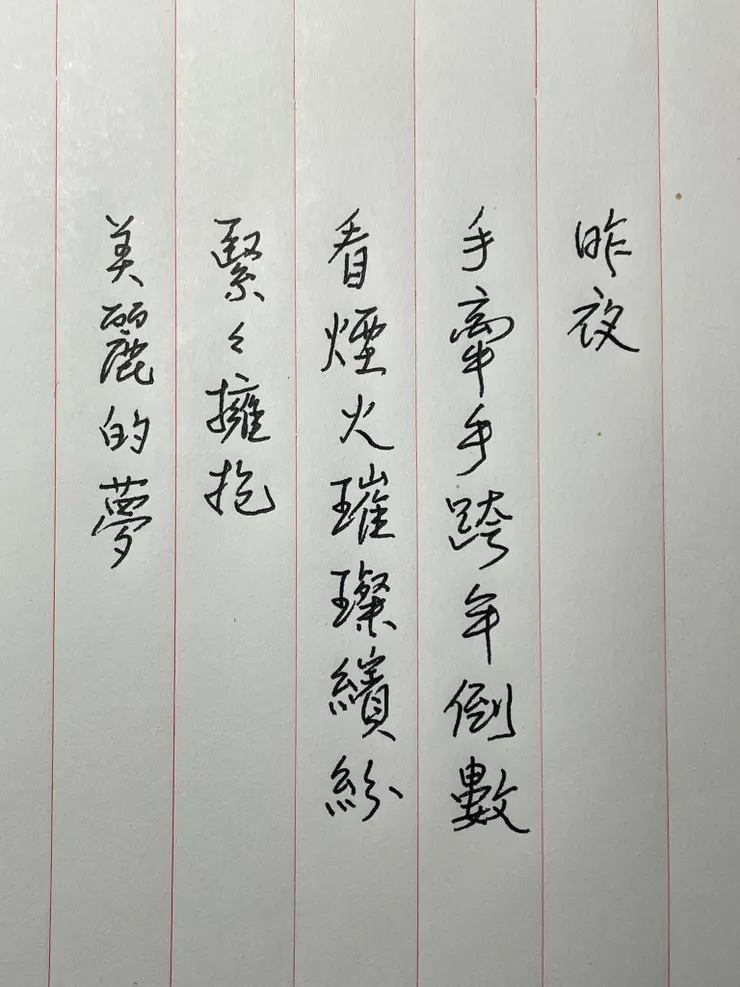 昨夜
手牽手跨年倒數
看煙火璀璨繽紛
緊々擁抱
美麗的夢